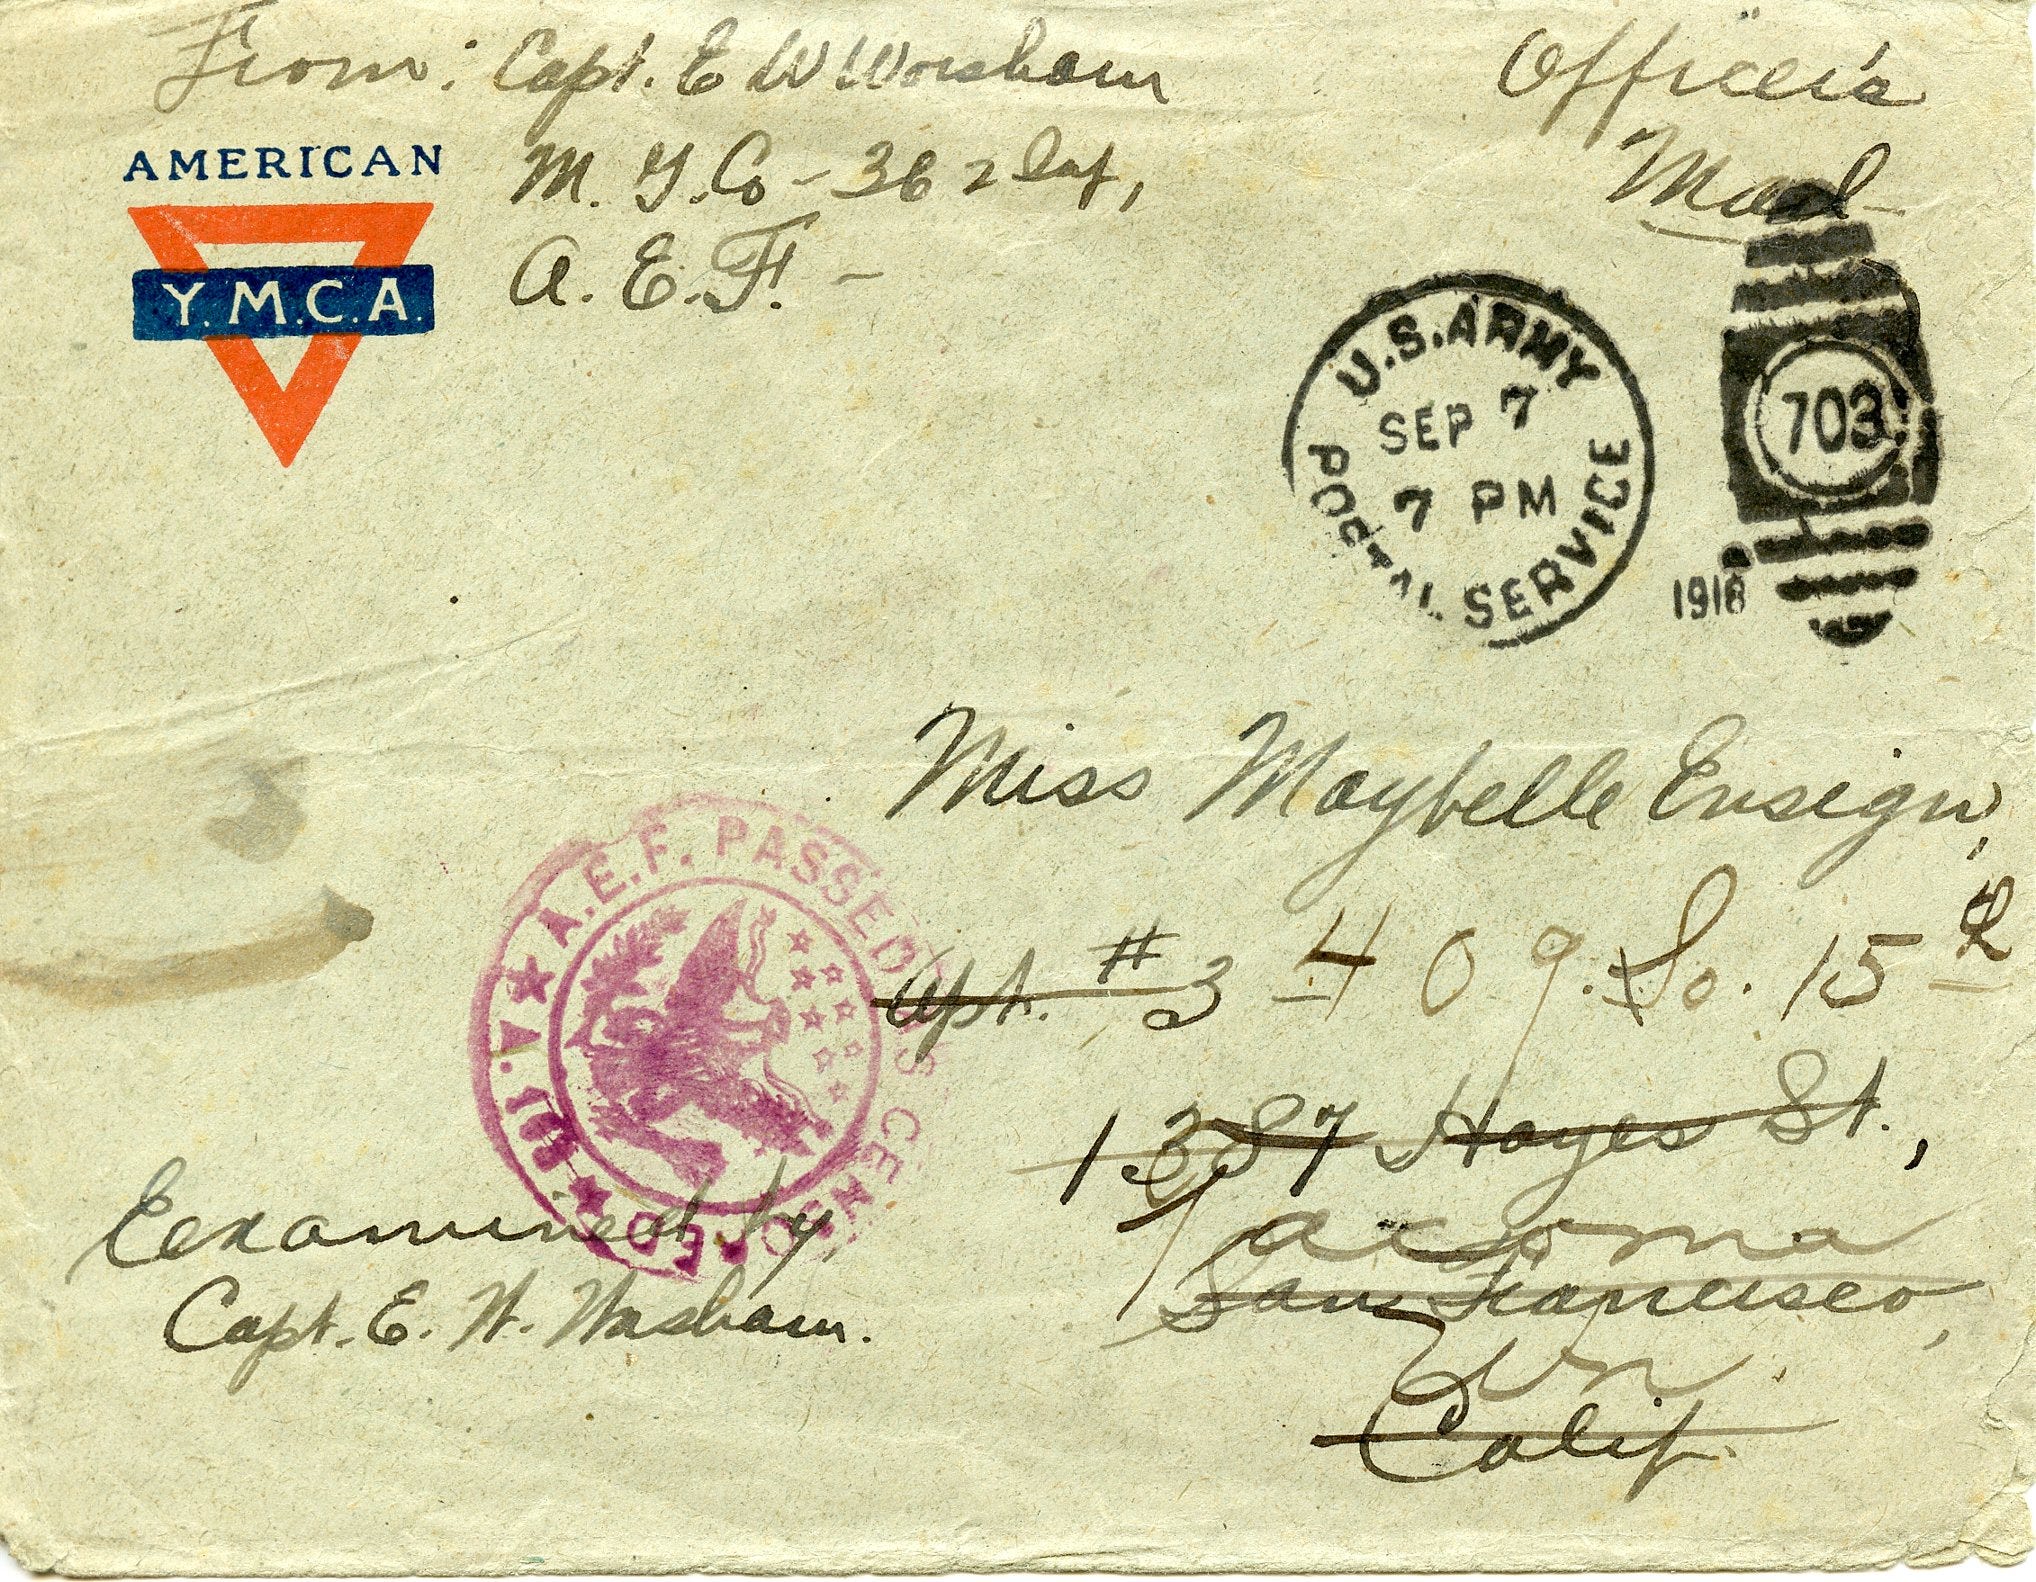 From: Capt. E W Worsham
Officer's
Mail
AMERICAN
Y.M.C.A.
M. G. Co - 362 Inf,
A. E. F. -
U.S. ARMY
POSTAL SERVICE
SEP 7
7 PM
703
1918
Miss Maybelle Ensign,
Apt. #3 409. So. 15th
1387 Hayes St.,
Tacoma
San Francisco,
Wn.
Calif.
A.E.F. PASSED AS CENSORED
Examined by,
Capt. E. W. Worsham.